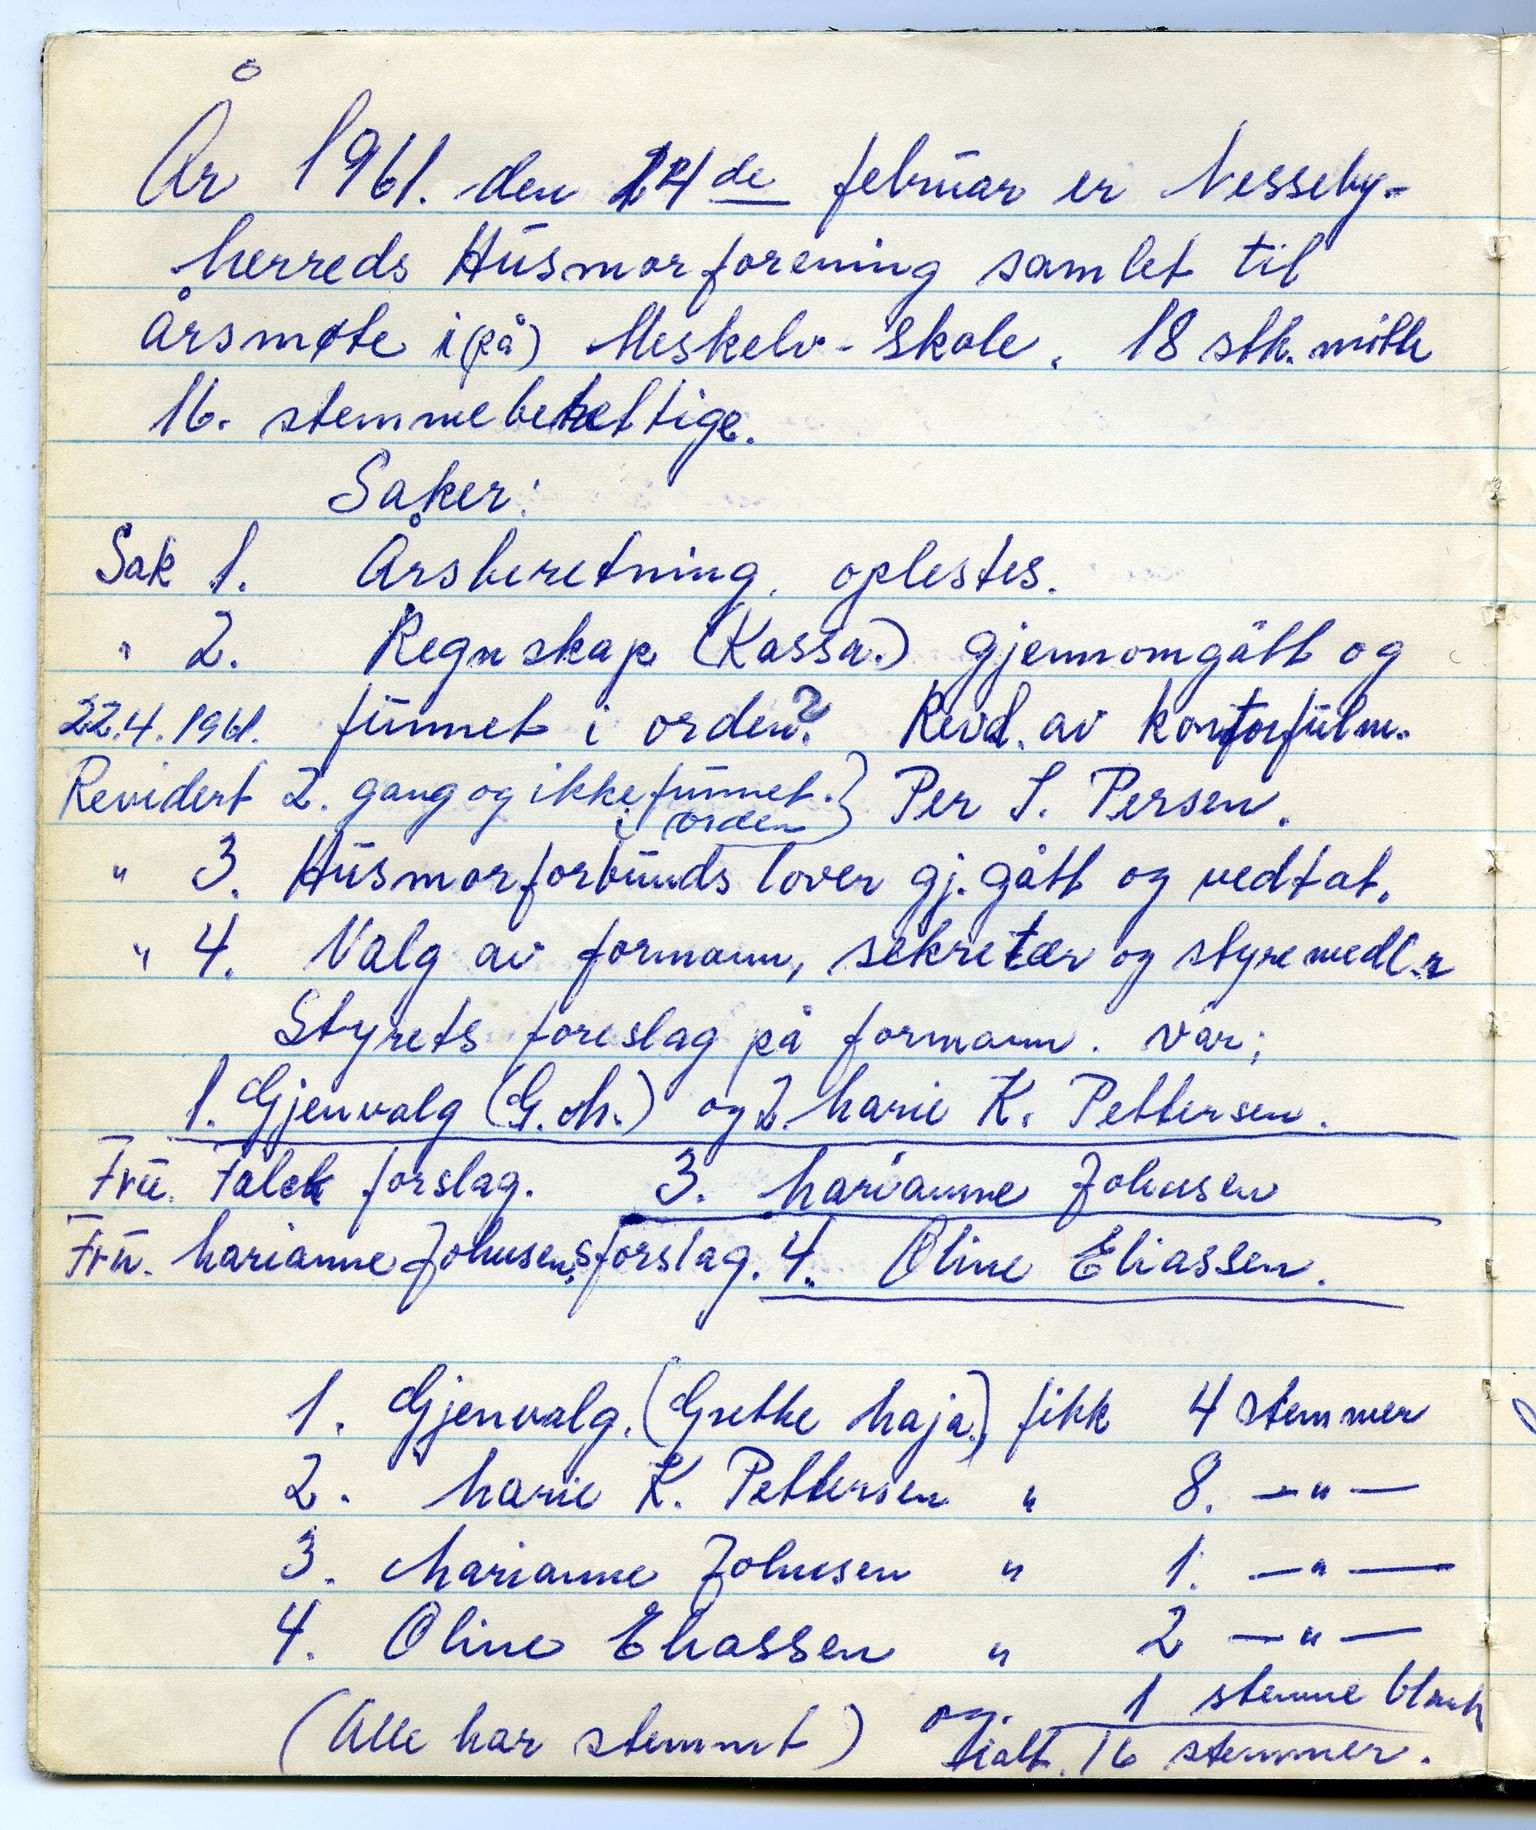 År 1961. den 24de februar er Nesseby-
herreds Husmorforening samlet til
Årsmøte i (på) Meskelv - skole. 18 stk. møtte
16. stemmeberettige.
Saker:
Sak 1. Årsberetning. oplestes.
" 2. Regnskap (Kassa.) gjennomgått og
22.4.1961. funnet i orden? Revd. av kontorfulm.
Revidert 2. gang og ikke funnet.} Per S. Persen.
i orden
" 3. Husmorforbunds lover gj. gått og vedtat.
" 4. Valg av formann, sekretær og styremedl.r
Styrets foreslag på formann. var;
1. Gjenvalg (G. M.) og 2 Marie K. Pettersen.
Fru. Falck forslag. 3. Marianne Johnsen
Fru. Marianne Johnsens forslag. 4. Oline Eliassen.
1. Gjenvalg. (Grethe Maja.) fikk 4 stemmer
2. Marie K. Pettersen " 8. —"—
3. Marianne Johnsen " 1. —"—
4. Oline Eliassen " 2 —"—
og. 1 stemme blank
(Alle har stemmt) tialt. 16 stemmer.